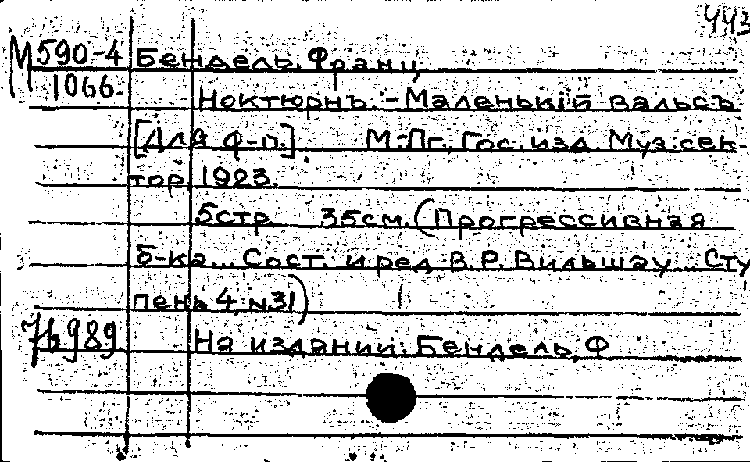 443
М590-4 Бендель, Франц
1066. Ноктюрнъ. - Маленькій вальсъ
[Для ф-п.] М.-Пг., Гос. изд. Муз. сек-
тор, 1923.
5 стр. 35 см. (Прогрессивная
б-ка... Сост. и ред. В. Р. Вильшау... Сту
пень 4, №31)
989 На издании: Бендель, Ф